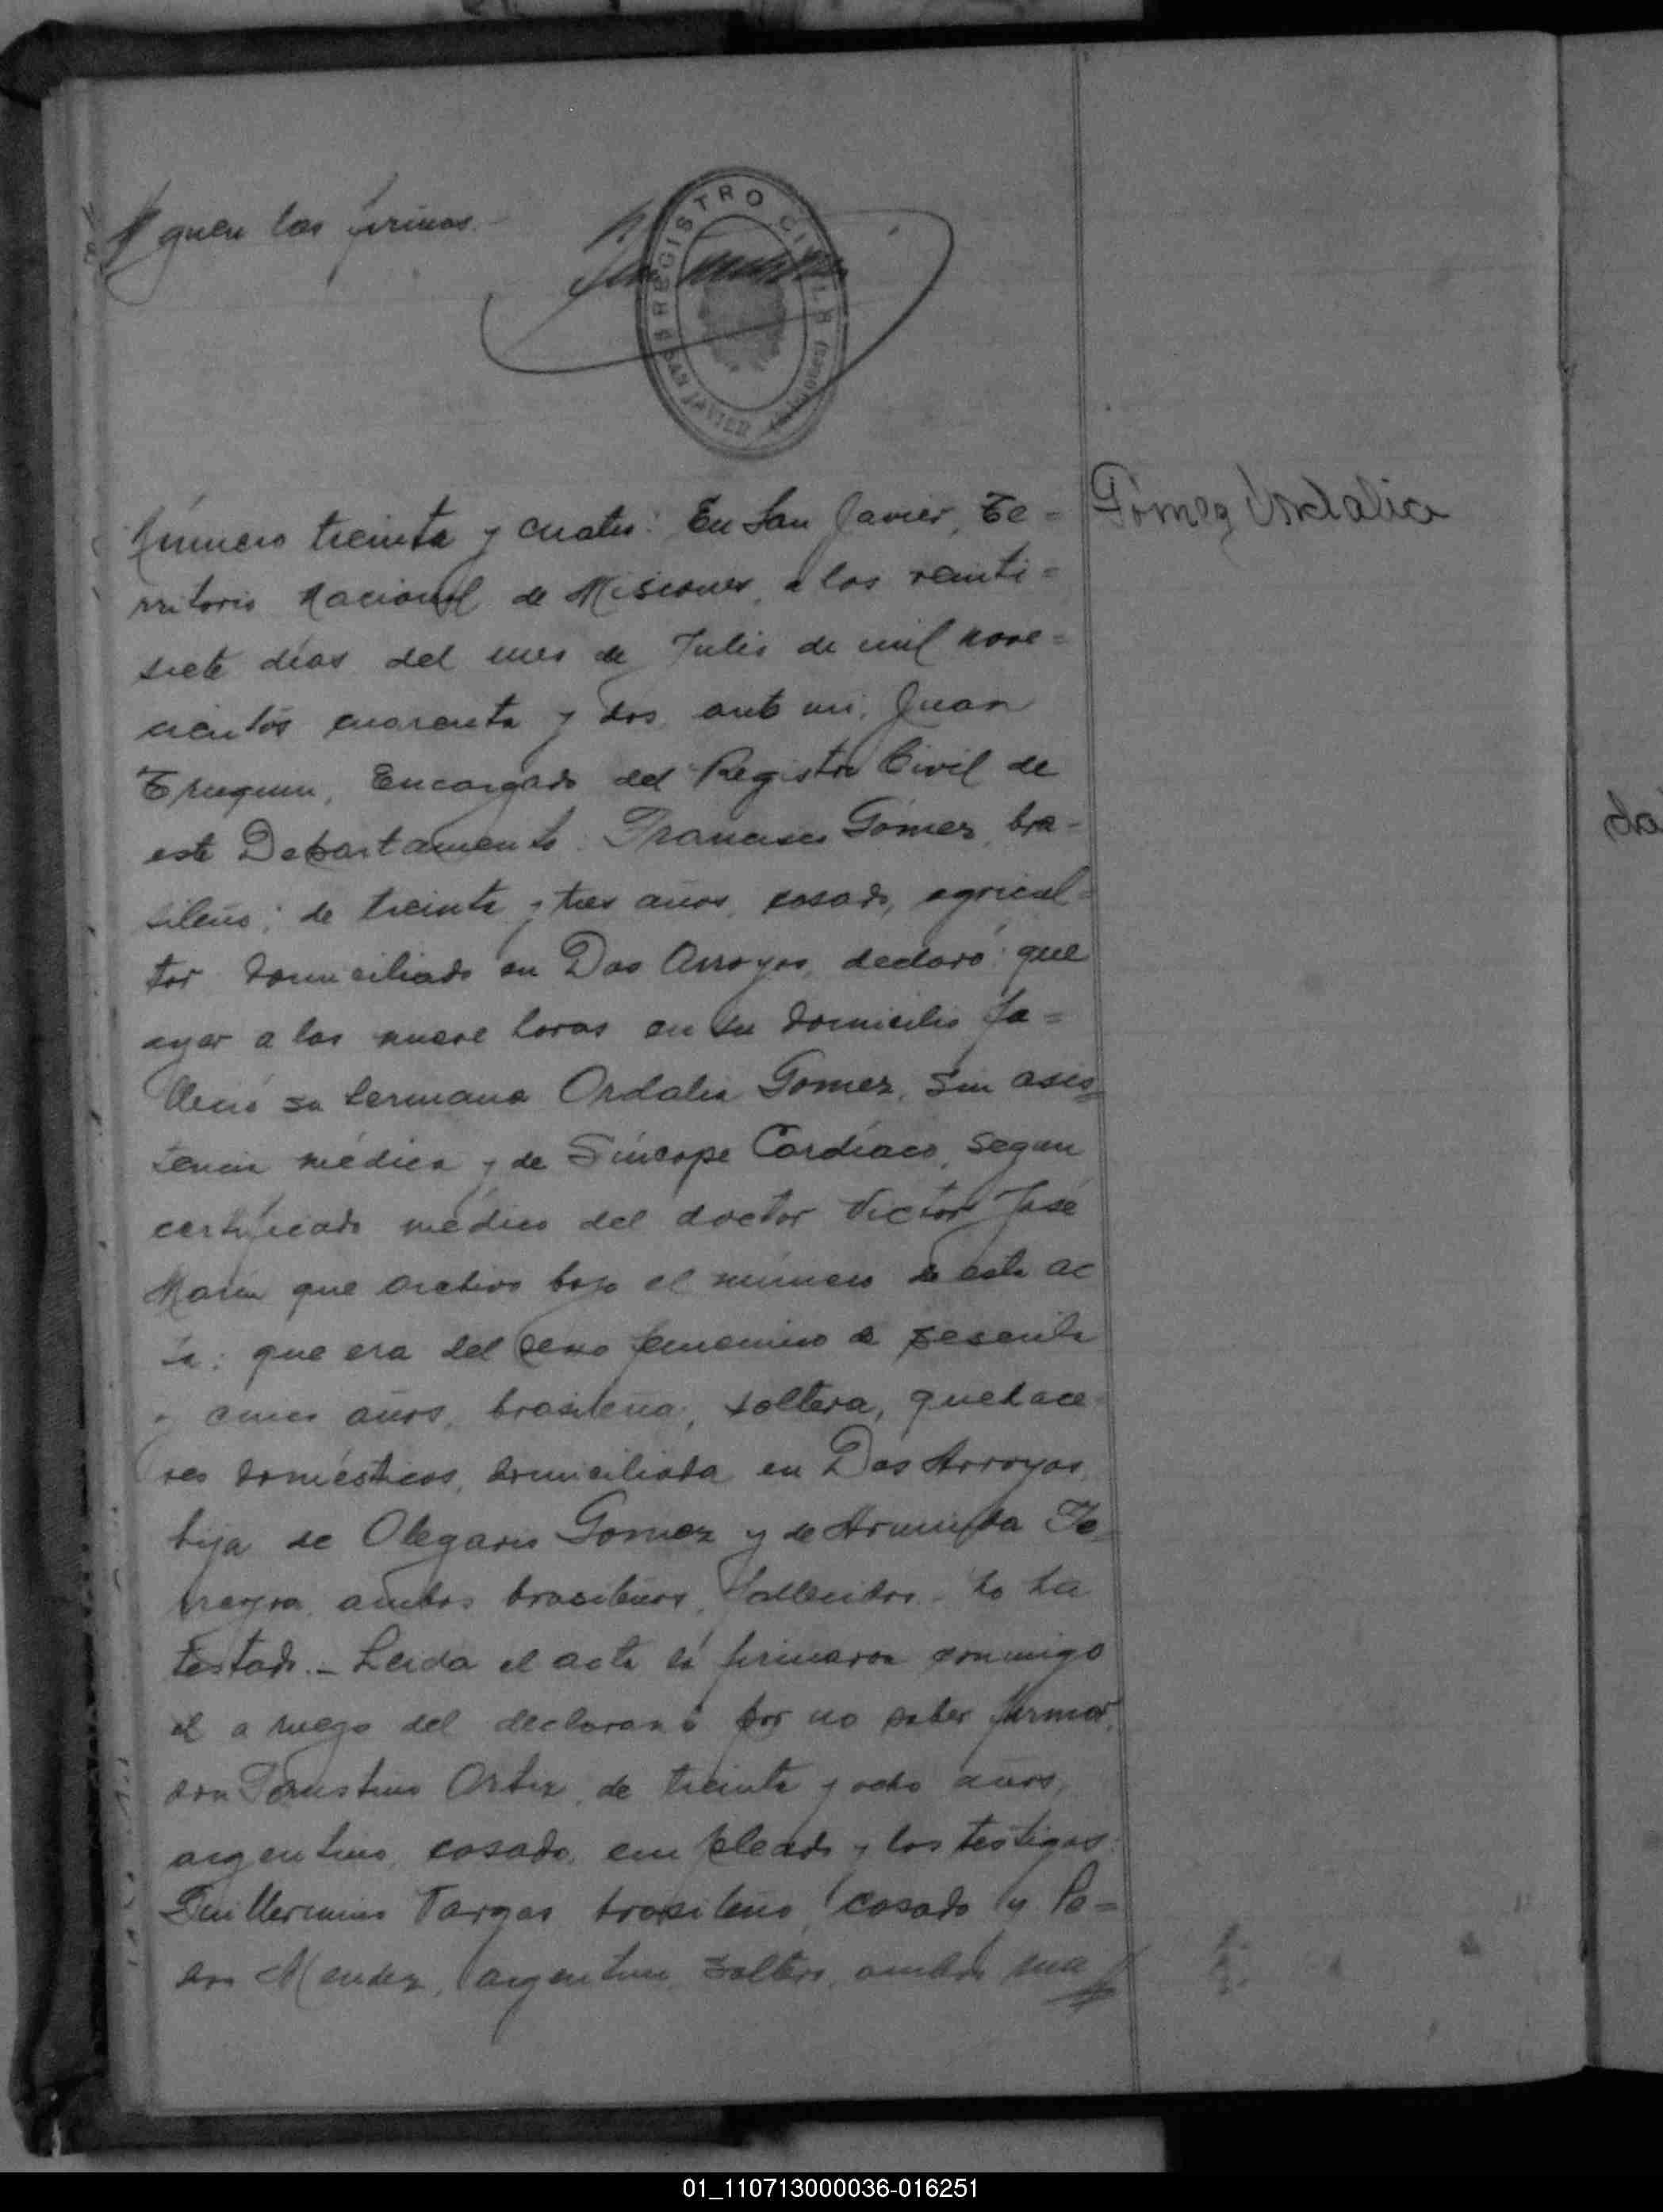 guen las firmas.-
REGISTRO CIVIL
SAN JAVIER (Misiones)
Número treinta y cuatro: En San Javier, Te=
rritorio Nacional de Misiones, a los veinti=
siete dias del mes de Julio de mil nove=
cientos cuarenta y dos, ante mi, Juan
Encargado del Registro Civil de
este Departamento: Francisco Gómez, bra-
sileño; de treinta y tres años, casado, agricul=
tor domiciliado en Dos Arroyos, declaró: que
ayer a las nueve horas en su domicilio fa=
lleció su hermana Ordalia Gomez, sin asis=
tencia médica y de Síncope Cardíaco, segun
certificado médico del doctor Victor José
Marin que archivo bajo el número de esta ac
ta: que era del sexo femenino de sesenta
y cinco años, brasileña, soltera, quehace
res domésticos, domiciliada en Dos Arroyos,
hija de Olegario Gomez y de Arminda Fe=
rreyra, ambos brasileños, fallecidos. No ha
testado.- Leida el acta la firmaron conmigo
el a ruego del declarante por no saber firmar,
don Faustino Ortiz, de treinta y ocho años,
argentino, casado, empleado y los testigos:
Guillermino Vargas brasileño, casado y Pe=
dro Mendez, argentino, soltero, ambos ma
Gómez Ordalia
01_110713000036-016251